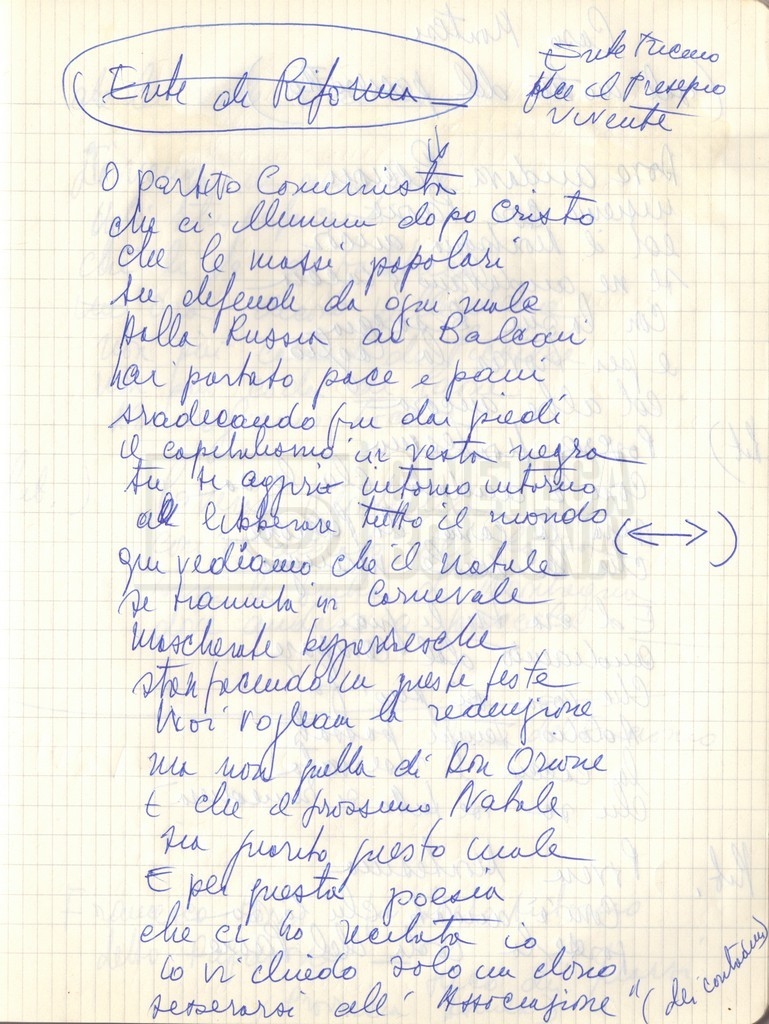 Ente di Riforma
Ente Fucino
fece il Presepio
vivente
O partito Comunista
che ci illumini dopo Cristo
che le massi popolari
tu defende da ogni male
dalla Russia ai Balcani
hai portato pace e pani
sradecando fin dai piedi
il capitalismo in vesta negra
tu ti aggiri intorno intorno
a libberare tutto il mondo
qui vediamo che il Natale
se tramuta in Carnevale
mascherate
sta facendo in queste feste
Noi vogliam la redenzione
ma non quella di Don Orione
E che il prossimo Natale
sia guarito questo male
E per questa poesia
che ci ho recitata io
Io vi chiedo solo un dono
tesserarsi all' Associazione" (dei contadini)